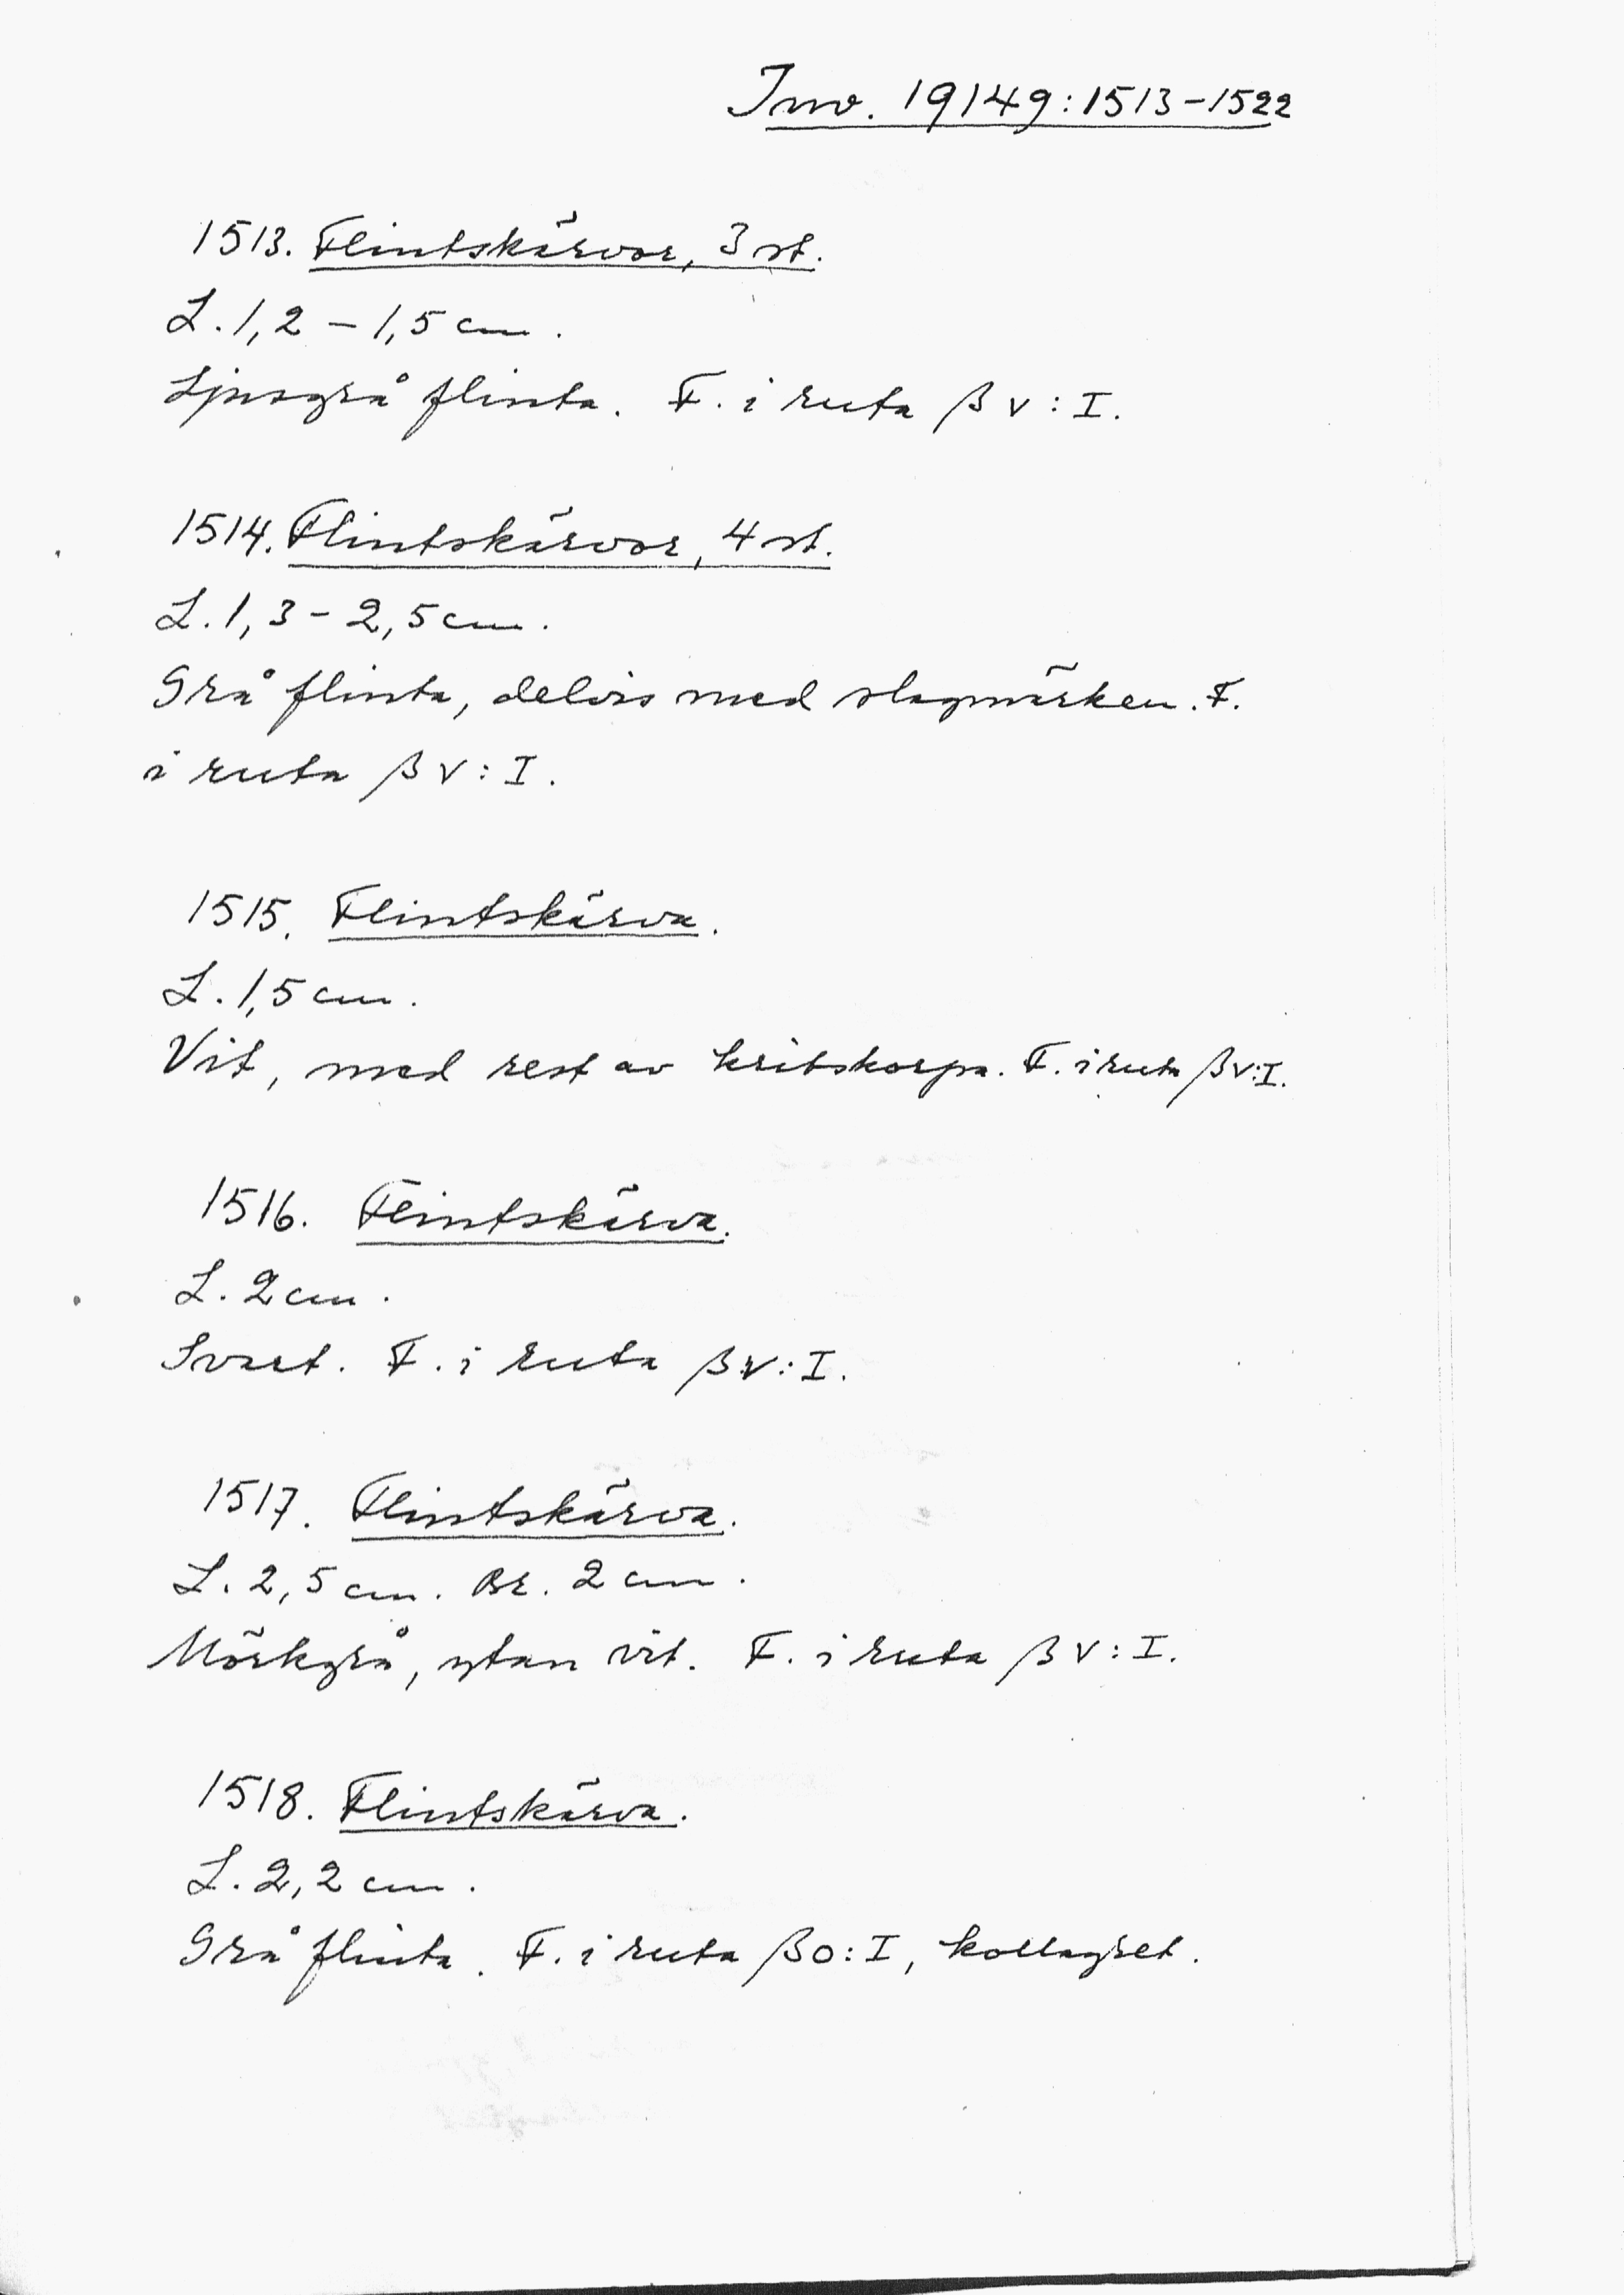 Inv. 19149:1513-1522
1513. Flintskärvor, 3 st.
L. 1,2 – 1,5 cm.
Ljusgrå flinta. F. i ruta β V : I.
1514. Flintskärvor, 4 st.
L. 1,3 - 2,5 cm.
Grå flinta, delvis med slagmärken. F.
i ruta β V : I.
1515. Flintskärva.
L. 1,5 cm.
Vit, med rest av kritskorpa. F. i ruta β V:I.
1516. Flintskärva.
L. 2 cm.
Svart. F. i ruta β V : I.
1517. Flintskärva.
L. 2,5 cm. Br. 2 cm.
Mörkgrå, ytan vit. F. i ruta β V : I.
1518. Flintskärva.
L. 2,2 cm.
Grå flinta. F. i ruta β O : I, kollagret.